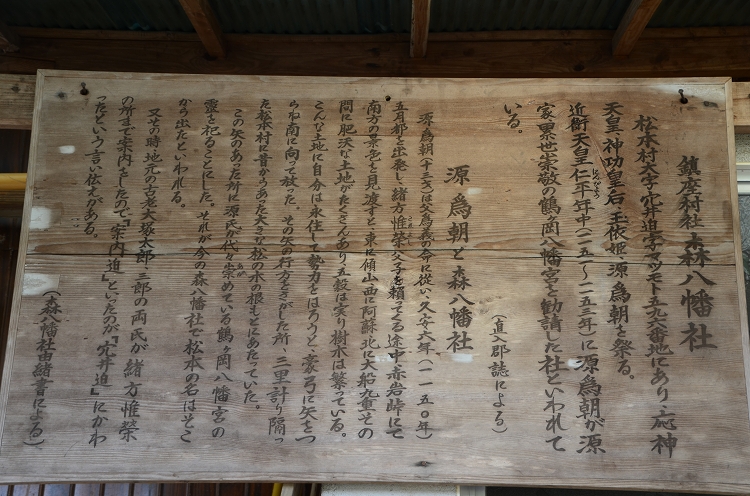 鎮座村社 森八幡社
松本村大字穴井迫字マツモト五九六番地にあり、応神
天皇、神功皇后、玉依姫、源爲朝を祭る。
近衛天皇仁平年中(一一五一〜一一五三年)に源爲朝が源
家累世崇敬の鶴岡八幡宮を勧請した社といわれて
いる。
(直入郡誌による)
源爲朝と森八幡社
源爲朝(十三才)は父爲義の命に従い、久安六年(一一五〇年)
五月都を出発し緒方惟榮父子を頼ってる途中赤岩峠にて
南方の景色を見渡すと、東に傾山西に阿蘇北に大船九重その
間に肥沃な土地がたくさんあり、五穀は実り樹木は繁っている。
こんな土地に自分は永住して勢力をはろうと豪弓に矢をつ
らね南に向って放った。その矢の行方をさがした所、三里計り隔っ
た松本村に昔からあった大きな松の木の根もとにあたっていた。
この矢のあった所に源氏が代々崇めている鶴ヶ岡八幡宮の
霊を祀ることにした。それが今の森八幡社で松本の名はそこ
から出たといわれる。
又その時地元の古老大塚太郎、三郎の両氏が緒方惟榮
の所まで案内をしたので『案内迫』といったのが『穴井迫』にかわ
ったという言い伝えがある。
(森八幡社由緒書による)